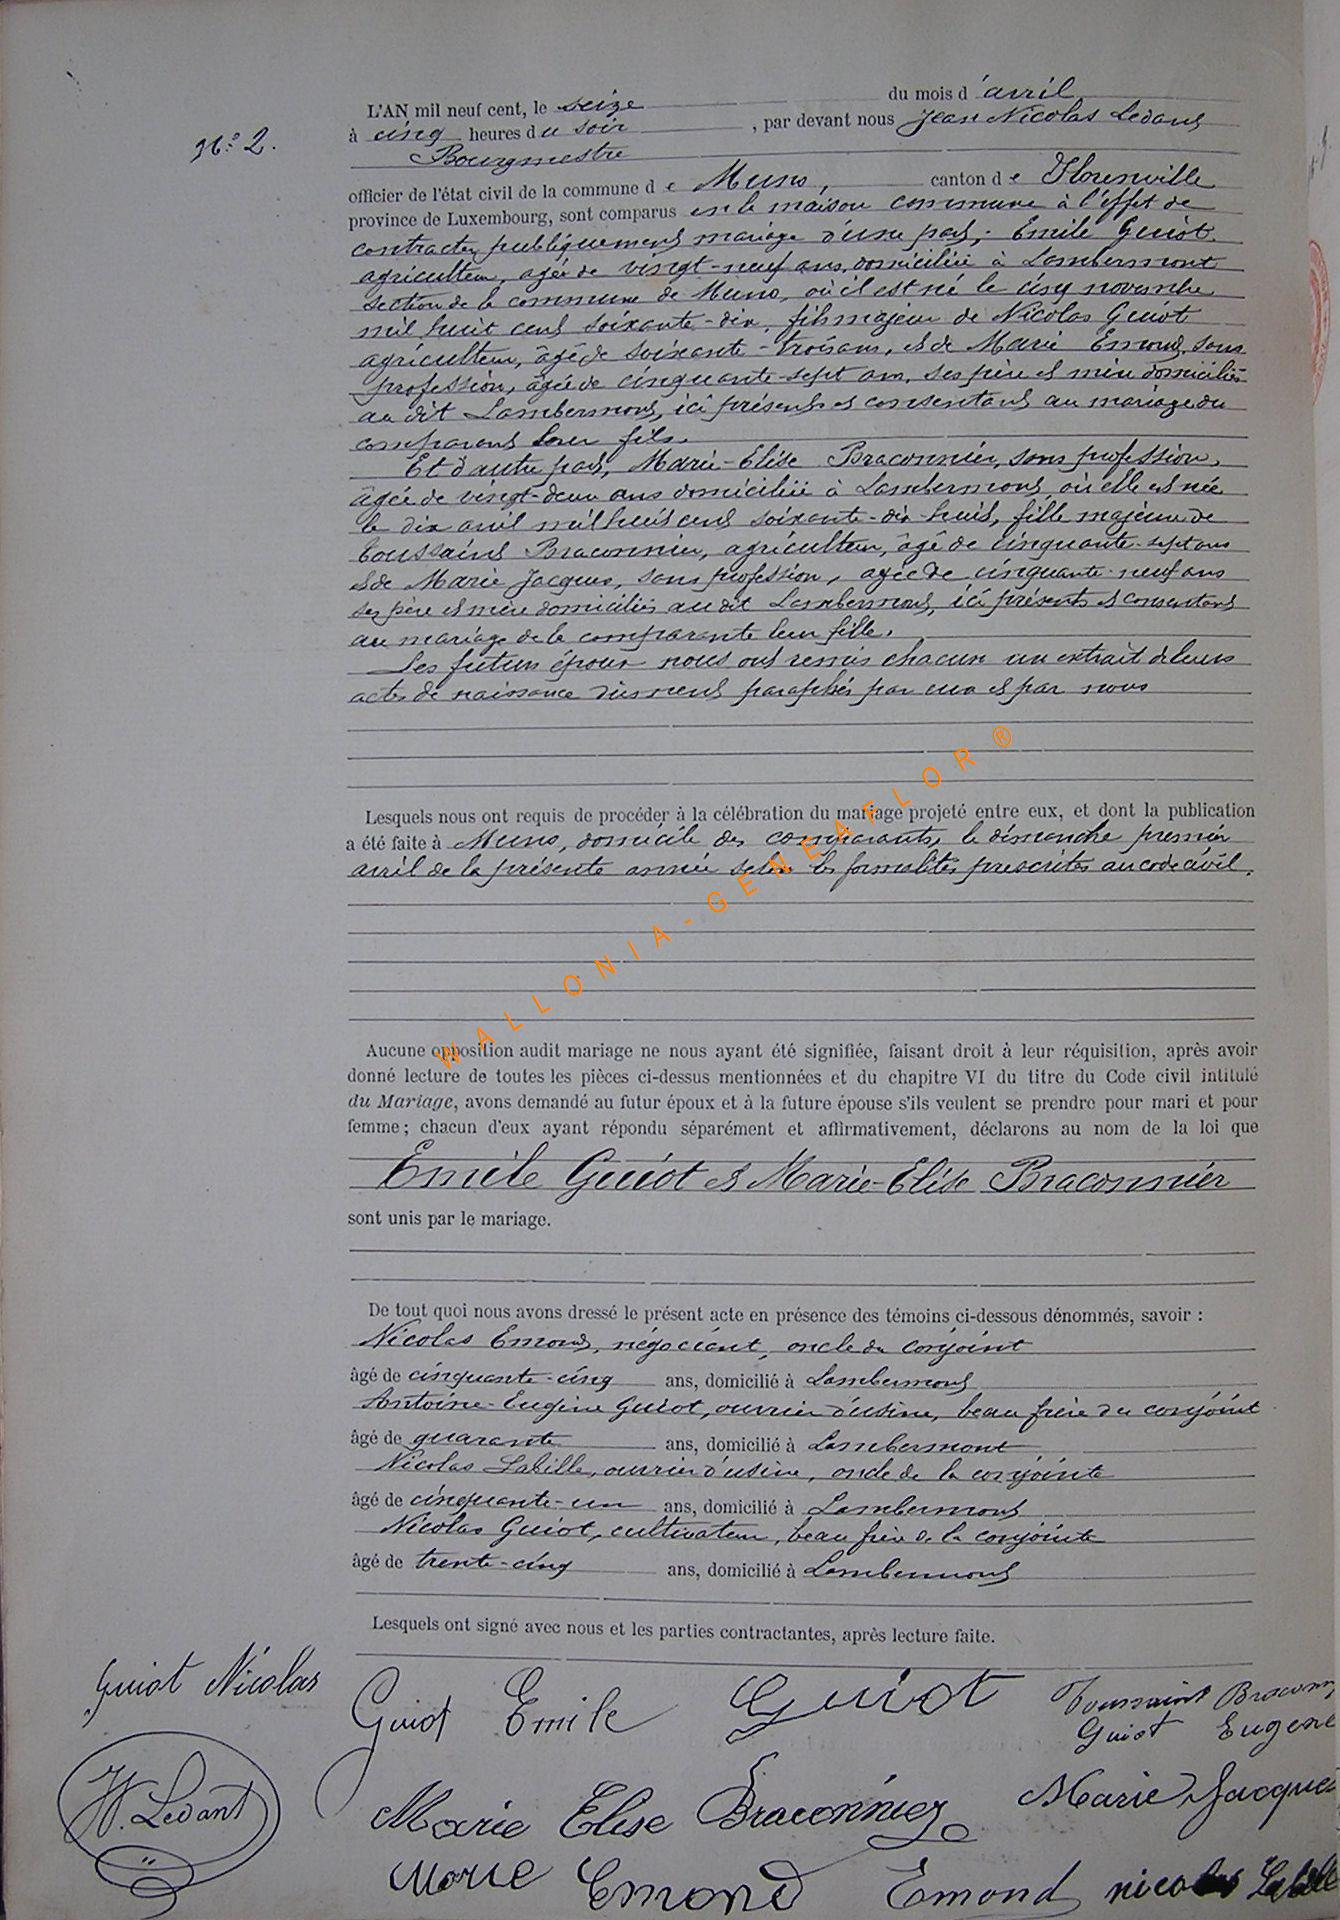 N.° 2.
L'AN mil neuf cent, le seize du mois d'avril
à cinq heures du soir, par devant nous Jean Nicolas Ledant
Bourgmestre
officier de l'état civil de la commune de Muno, canton de Florenville
province de Luxembourg, sont comparus en la maison commune à l'effet de
contracter publiquement mariage d'une part, Emile Guiot
agriculteur, agé de vingt-neuf ans, domicilié à Lambermont
section de la commune de Muno, où il est né le cinq novembre
mil huit cent soixante-dix, fils majeur de Nicolas Guiot
agriculteur, âgé de soixante-trois ans, et de Marie Emond, sans
profession, âgée de cinquante-sept ans, ses père et mère domiciliés
au dit Lambermont, ici présents et consentant au mariage du
comparant leur fils.
Et d'autre part, Marie-Elise Braconnier, sans profession,
âgée de vingt-deux ans domiciliée à Lambermont, où elle est née
le dix avril mil huit cent soixante-dix-huit, fille majeure de
Toussaint Braconnier, agriculteur, âgé de cinquante-sept ans
et de Marie Jacques, sans profession, agée de cinquante-neuf ans
ses père et mère domiciliés au dit Lambermont, ici présents et consentant
au mariage de la comparante leur fille.
Les futurs époux nous ont remis chacun un extrait de leurs
actes de naissance dûment paraphés par eux et par nous
Lesquels nous ont requis de procéder à la célébration du mariage projeté entre eux, et dont la publication
a été faite à Muno, domicile des comparants, le dimanche premier
avril de la présente année selon les formalités prescrites au code civil.
WALLONIA-GENEAFLOR®
Aucune opposition audit mariage ne nous ayant été signifiée, faisant droit à leur réquisition, après avoir
donné lecture de toutes les pièces ci-dessus mentionnées et du chapitre VI du titre du Code civil intitulé
du Mariage, avons demandé au futur époux et à la future épouse s'ils veulent se prendre pour mari et pour
femme; chacun d'eux ayant répondu séparément et affirmativement, déclarons au nom de la loi que
Emile Guiot et Marie-Elise Braconnier
sont unis par le mariage.
De tout quoi nous avons dressé le présent acte en présence des témoins ci-dessous dénommés, savoir :
Nicolas Emond, négociant, oncle du conjoint
âgé de cinquante-cinq ans, domicilié à Lambermont
Antoine-Eugène Guiot, ouvrier d'usine, beau frère du conjoint
âgé de quarante ans, domicilié à Lambermont
Nicolas Labille, ouvrier d'usine, oncle de la conjointe
âgé de cinquante-un ans, domicilié à Lambermont
Nicolas Guiot, cultivateur, beau frère de la conjointe
âgé de trente-cinq ans, domicilié à Lambermont
Lesquels ont signé avec nous et les parties contractantes, après lecture faite.
Guiot Nicolas
Guiot Emile
Guiot
Toussaint Braconn
Guiot Eugene
N. Ledant
Marie Elise Braconnier
Marie Jacques
Marie Emond
Emond
nicolas Labille